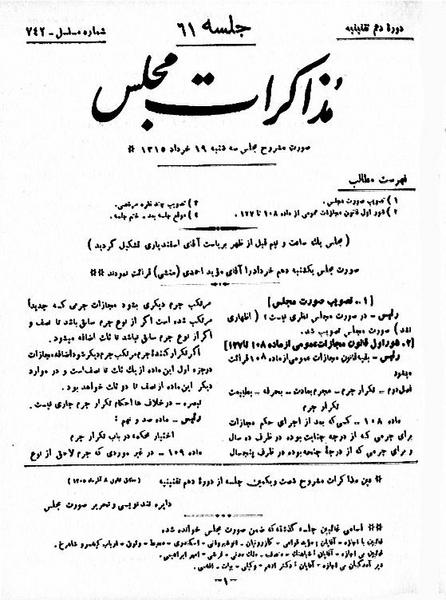 دورهٔ دهم تقنینیه
جلسه ۶۱
شماره مسلسل - ۷۴۲
مذاکرات مجلس
صورت مشروح مجلس سه شنبه ۱۹ خرداد ۱۳۱۵ *
فهرست مطالب
۱) تصویب صورت مجلس.
۲) شور اول قانون مجازات عمومی از ماده ۱۰۸ تا ۱۲۷
۳) تصویب چند فقره مرخصی.
۴) موقع جلسه بعد - ختم جلسه.
(مجلس یك ساعت و نیم قبل از ظهر بریاست آقای اسفندیاری تشکیل گردید)
صورت مجلس یکشنبه دهم خرداد را آقای مؤید احمدی (منشی) قرائت نمودند **
[۱ـ تصویب صورت مجلس]
رئیس - در صورت مجلس نظری نیست؟ (اظهاری
نشد) صورت مجلس تصویب شد.
[۲ـ شور اول قانون مجازات عمومی از ماده ۱۰۸ تا ۱۲۷]
رئیس - بقیه قانون مجازات عمومی از ماده ۱۰۸ قرائت
میشود
فصل دوم - تکرار جرم -
تکرار جرم
ماده ۱۰۸ - کسی که بعد از اجرای حکم مجازات
برای جرمی که از درجه جنایت بوده در ظرف ده سال
و برای جرمی که از درجهٔ جنحه بوده در ظرف پنجسال
مرتکب جرم دیگری بشود مجازات جرمی که جدیداً
مرتکب شده است اگر از نوع جرم سابق باشد تا نصف و
اگر از نوع جرم سابق نباشد تا ثلث اضافه میشود.
اگر تکرار کنندهٔ جرم مرتکب جرم دیگر شود اضافه مجازات
درجزء اول این ماده از یك ثلث تا نصف است و در موارد
دیگر این ماده از نصف تا دو ثلث خواهد بود.
تبصره - در خلافها احکام تکرار جرم جاری نیست.
رئیس - ماده صد و نهم:
اختیار محکمه در باب تکرار جرم
ماده ۱۰۹ - در غیر موردی که جرم لاحق از نوع
* عین مذاکرات مشروح شصت و یکمین جلسه از دورهٔ دهم تقنینیه
دایره تندنویسی و تحریر صورت مجلس
* اسامی غائبین جلسه گذشته که ضمن صورت مجلس خوانده شده
غائبین با اجازه - آقایان:
غائبین بی اجازه - آقایان:
دیر آمدگان بی اجازه - آقایان:
-۱-